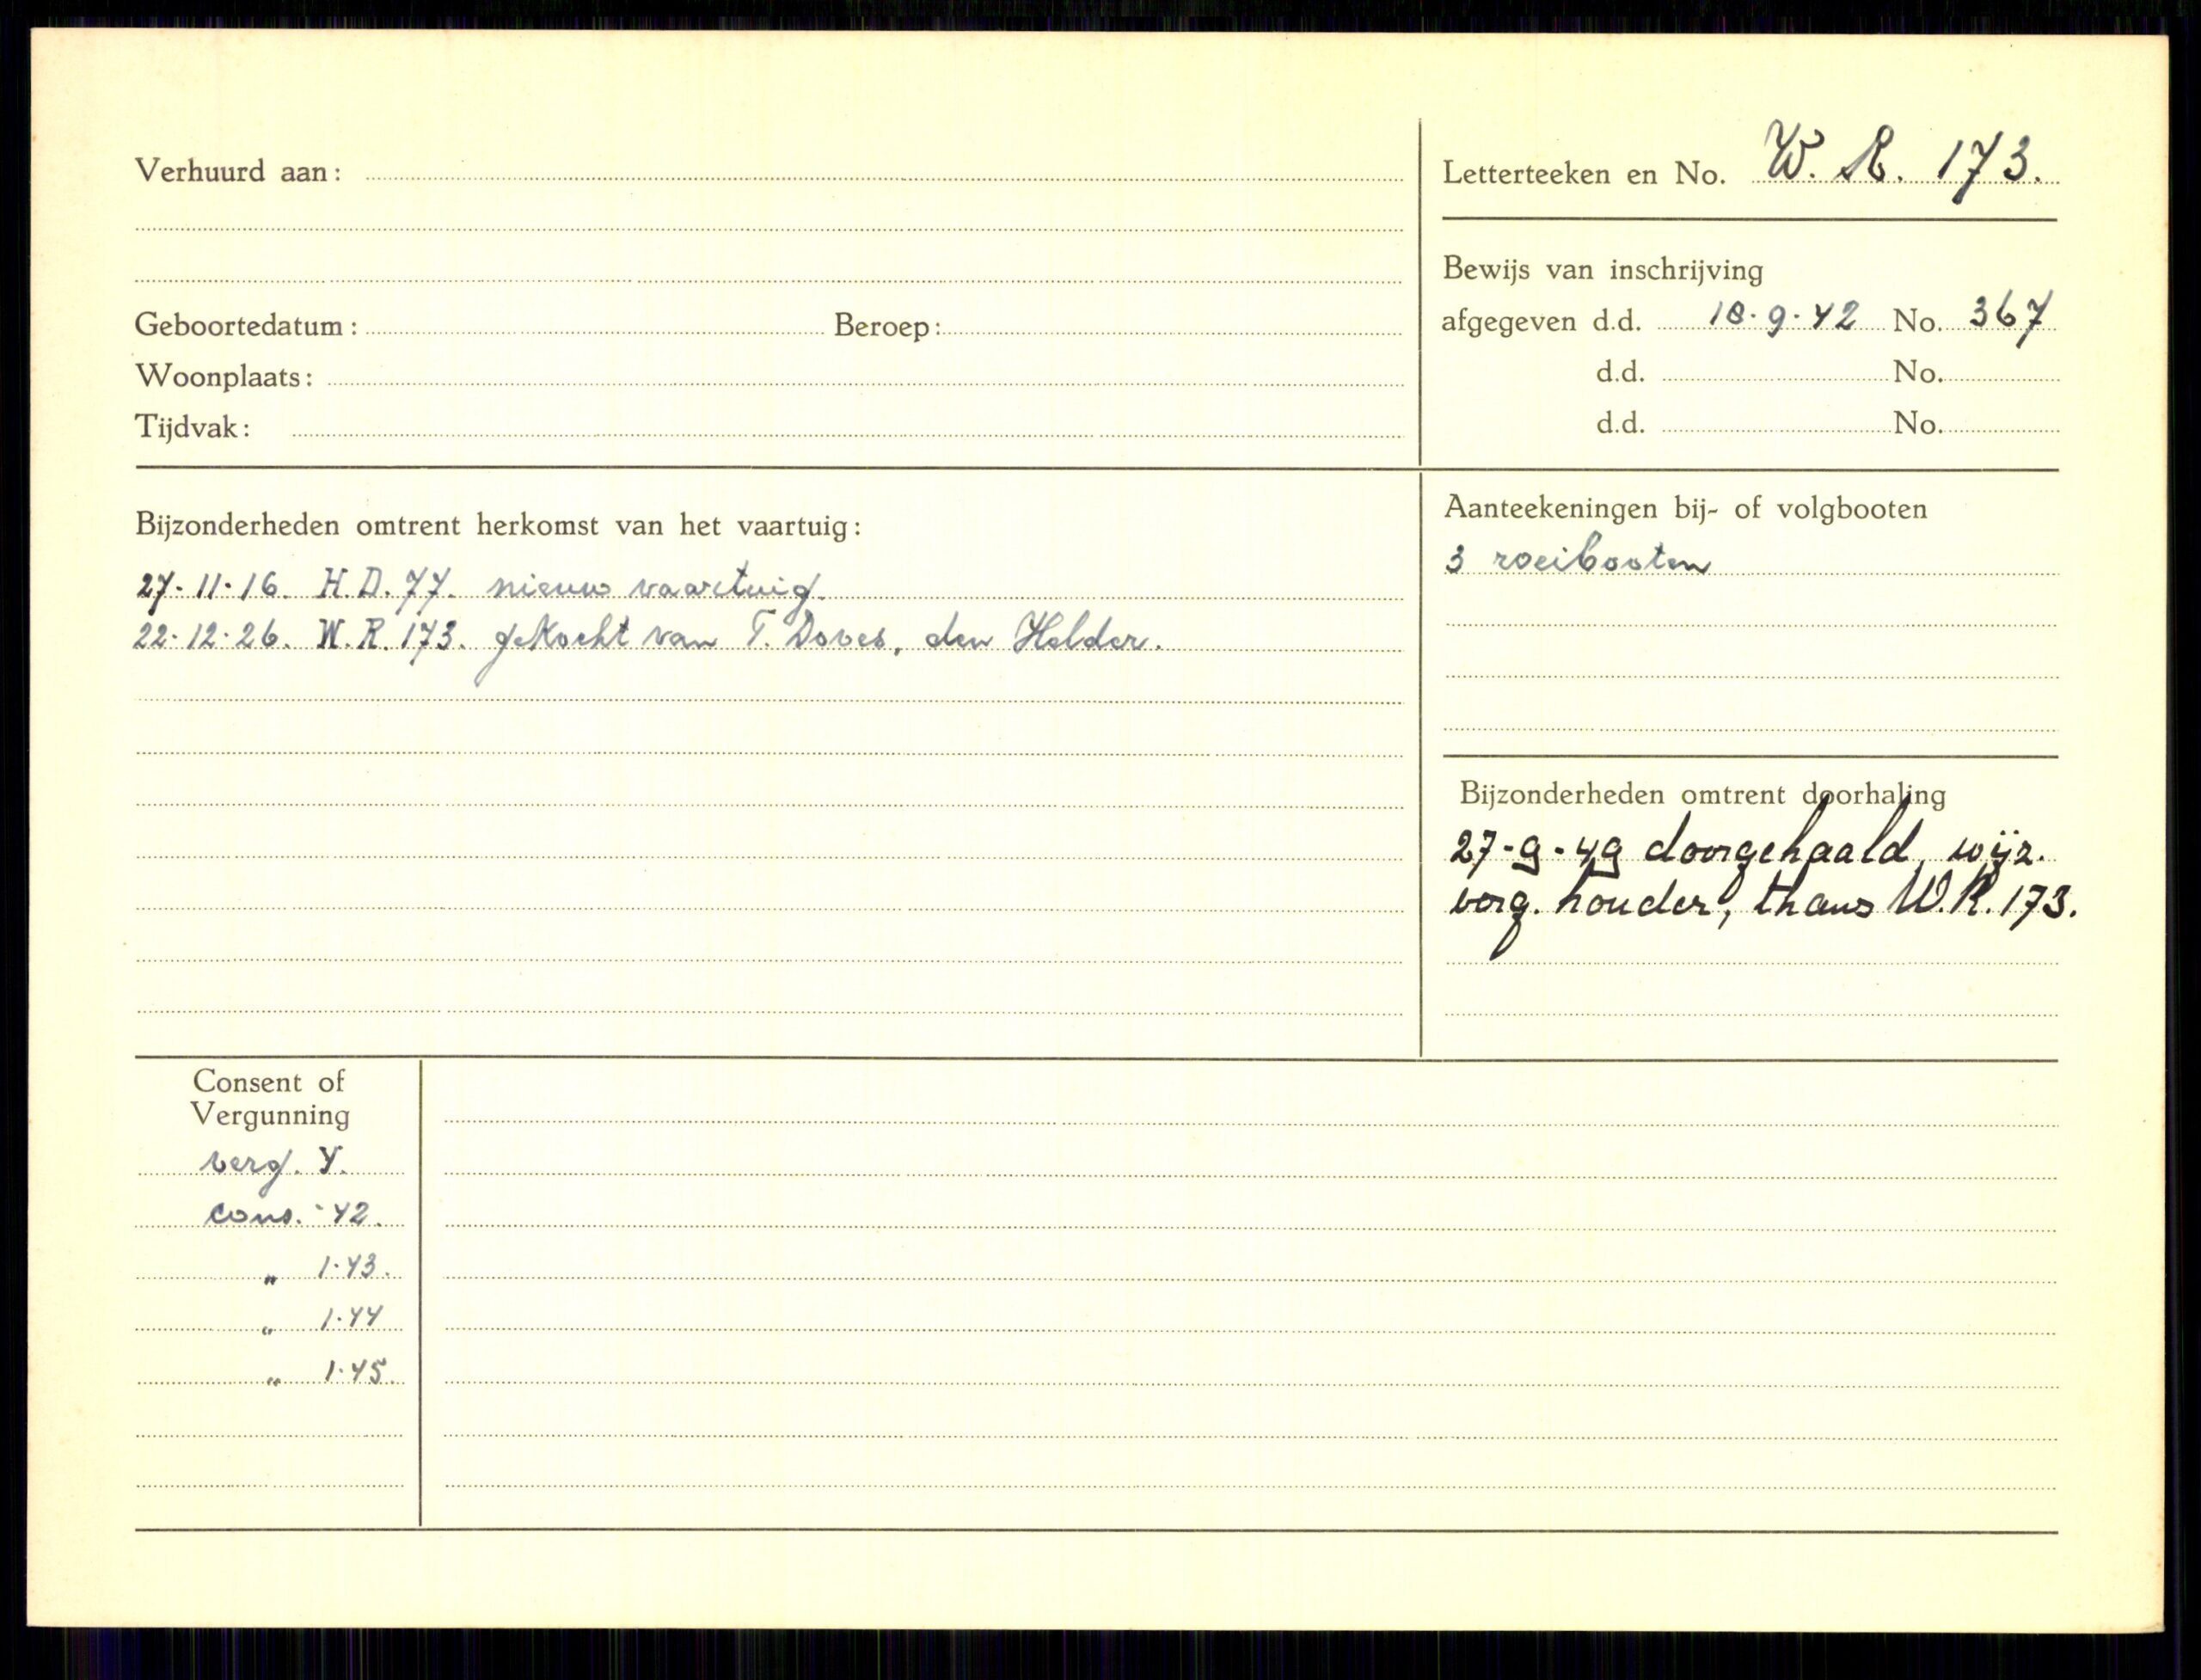 Verhuurd aan:
Geboortedatum: Beroep:
Woonplaats:
Tijdvak:
Letterteeken en No. W. R. 173.
Bewijs van inschrijving
afgegeven d.d. 18·9·42 No. 367
d.d. No.
d.d. No.
Bijzonderheden omtrent herkomst van het vaartuig:
27·11·16. H.D. 77. nieuw vaartuig.
22·12·26. W.R. 173. gekocht van T. Doves, den Helder.
Aanteekeningen bij- of volgbooten
3 roeibooten
Bijzonderheden omtrent doorhaling
27-9-49 doorgehaald, wijz.
verg. houder, thans W.R. 173.
Consent of
Vergunning
verg. Y.
cons. -42.
„ 1·43.
„ 1·44
„ 1·45.